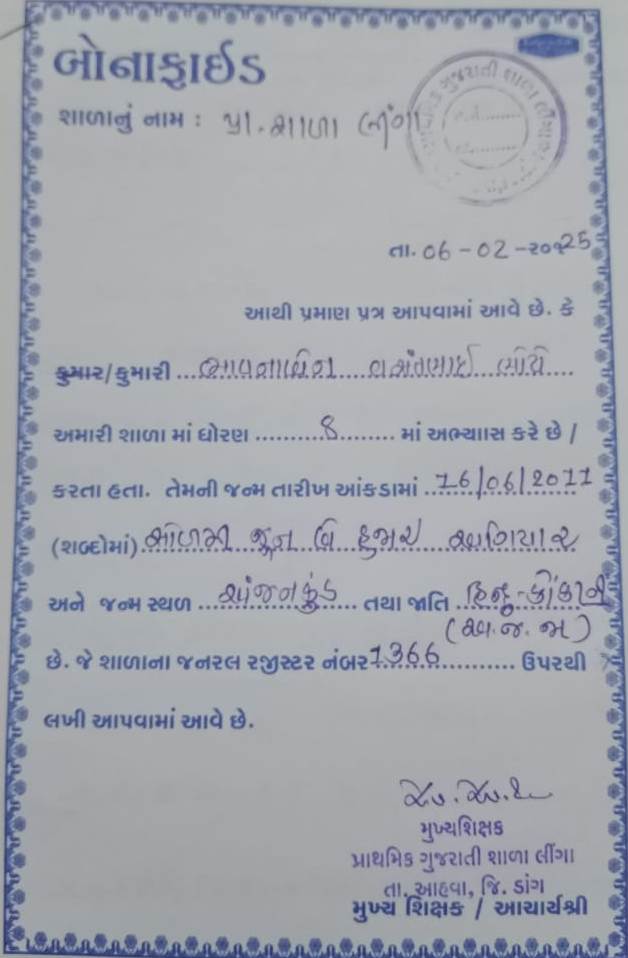 બોનાફાઈડ
શાળાનું નામ : પ્રા. શાળા લીંગા
તા. 06-02-2025
આથી પ્રમાણ પત્ર આપવામાં આવે છે. કે
કુમાર/કુમારી ભાવનાબેન વસંતભાઈ ભોયે
અમારી શાળા માં ધોરણ 8 માં અભ્યાસ કરે છે /
કરતા હતા. તેમની જન્મ તારીખ આંકડામાં 16/06/2011
(શબ્દોમાં) સોળમી જૂન બે હજાર અગિયાર
અને જન્મ સ્થળ અંજનકુંડ તથા જાતિ હિન્દુ-કોંકાની
(અ.જ.જા)
છે. જે શાળાના જનરલ રજીસ્ટર નંબર 1366 ઉપરથી
લખી આપવામાં આવે છે.
મુખ્યશિક્ષક
પ્રાથમિક ગુજરાતી શાળા લીંગા
તા. આહવા, જિ. ડાંગ
મુખ્ય શિક્ષક / આચાર્યશ્રી